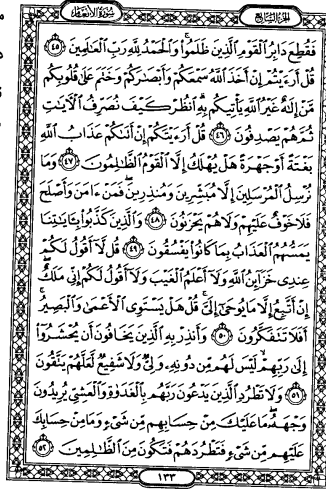 الجزء السابع
سورة الأنعام
فَقُطِعَ دَابِرُ الْقَوْمِ الَّذِينَ ظَلَمُوا وَالْحَمْدُ لِلَّهِ رَبِّ الْعَالَمِينَ ٤٥
قُلْ أَرَءَيْتُمْ إِنْ أَخَذَ اللَّهُ سَمْعَكُمْ وَأَبْصَارَكُمْ وَخَتَمَ عَلَى قُلُوبِكُم
مَّنْ إِلَٰهٌ غَيْرُ اللَّهِ يَأْتِيكُم بِهِ انظُرْ كَيْفَ نُصَرِّفُ الْآيَاتِ
ثُمَّ هُمْ يَصْدِفُونَ ٤٦ قُلْ أَرَءَيْتَكُمْ إِنْ أَتَاكُمْ عَذَابُ اللَّهِ
بَغْتَةً أَوْ جَهْرَةً هَلْ يُهْلَكُ إِلَّا الْقَوْمُ الظَّالِمُونَ ٤٧ وَمَا
نُرْسِلُ الْمُرْسَلِينَ إِلَّا مُبَشِّرِينَ وَمُنذِرِينَ فَمَنْ ءَامَنَ وَأَصْلَحَ
فَلَا خَوْفٌ عَلَيْهِمْ وَلَا هُمْ يَحْزَنُونَ ٤٨ وَالَّذِينَ كَذَّبُوا بِآيَاتِنَا
يَمَسُّهُمُ الْعَذَابُ بِمَا كَانُوا يَفْسُقُونَ ٤٩ قُل لَّا أَقُولُ لَكُمْ
عِندِي خَزَائِنُ اللَّهِ وَلَا أَعْلَمُ الْغَيْبَ وَلَا أَقُولُ لَكُمْ إِنِّي مَلَكٌ
إِنْ أَتَّبِعُ إِلَّا مَا يُوحَى إِلَيَّ قُلْ هَلْ يَسْتَوِي الْأَعْمَى وَالْبَصِيرُ
أَفَلَا تَتَفَكَّرُونَ ٥٠ وَأَنذِرْ بِهِ الَّذِينَ يَخَافُونَ أَن يُحْشَرُوا
إِلَى رَبِّهِمْ لَيْسَ لَهُم مِّن دُونِهِ وَلِيٌّ وَلَا شَفِيعٌ لَّعَلَّهُمْ يَتَّقُونَ
٥١ وَلَا تَطْرُدِ الَّذِينَ يَدْعُونَ رَبَّهُم بِالْغَدَوٰةِ وَالْعَشِيِّ يُرِيدُونَ
وَجْهَهُ مَا عَلَيْكَ مِنْ حِسَابِهِم مِّن شَيْءٍ وَمَا مِنْ حِسَابِكَ
عَلَيْهِم مِّن شَيْءٍ فَتَطْرُدَهُمْ فَتَكُونَ مِنَ الظَّالِمِينَ ٥٢
١٣٣